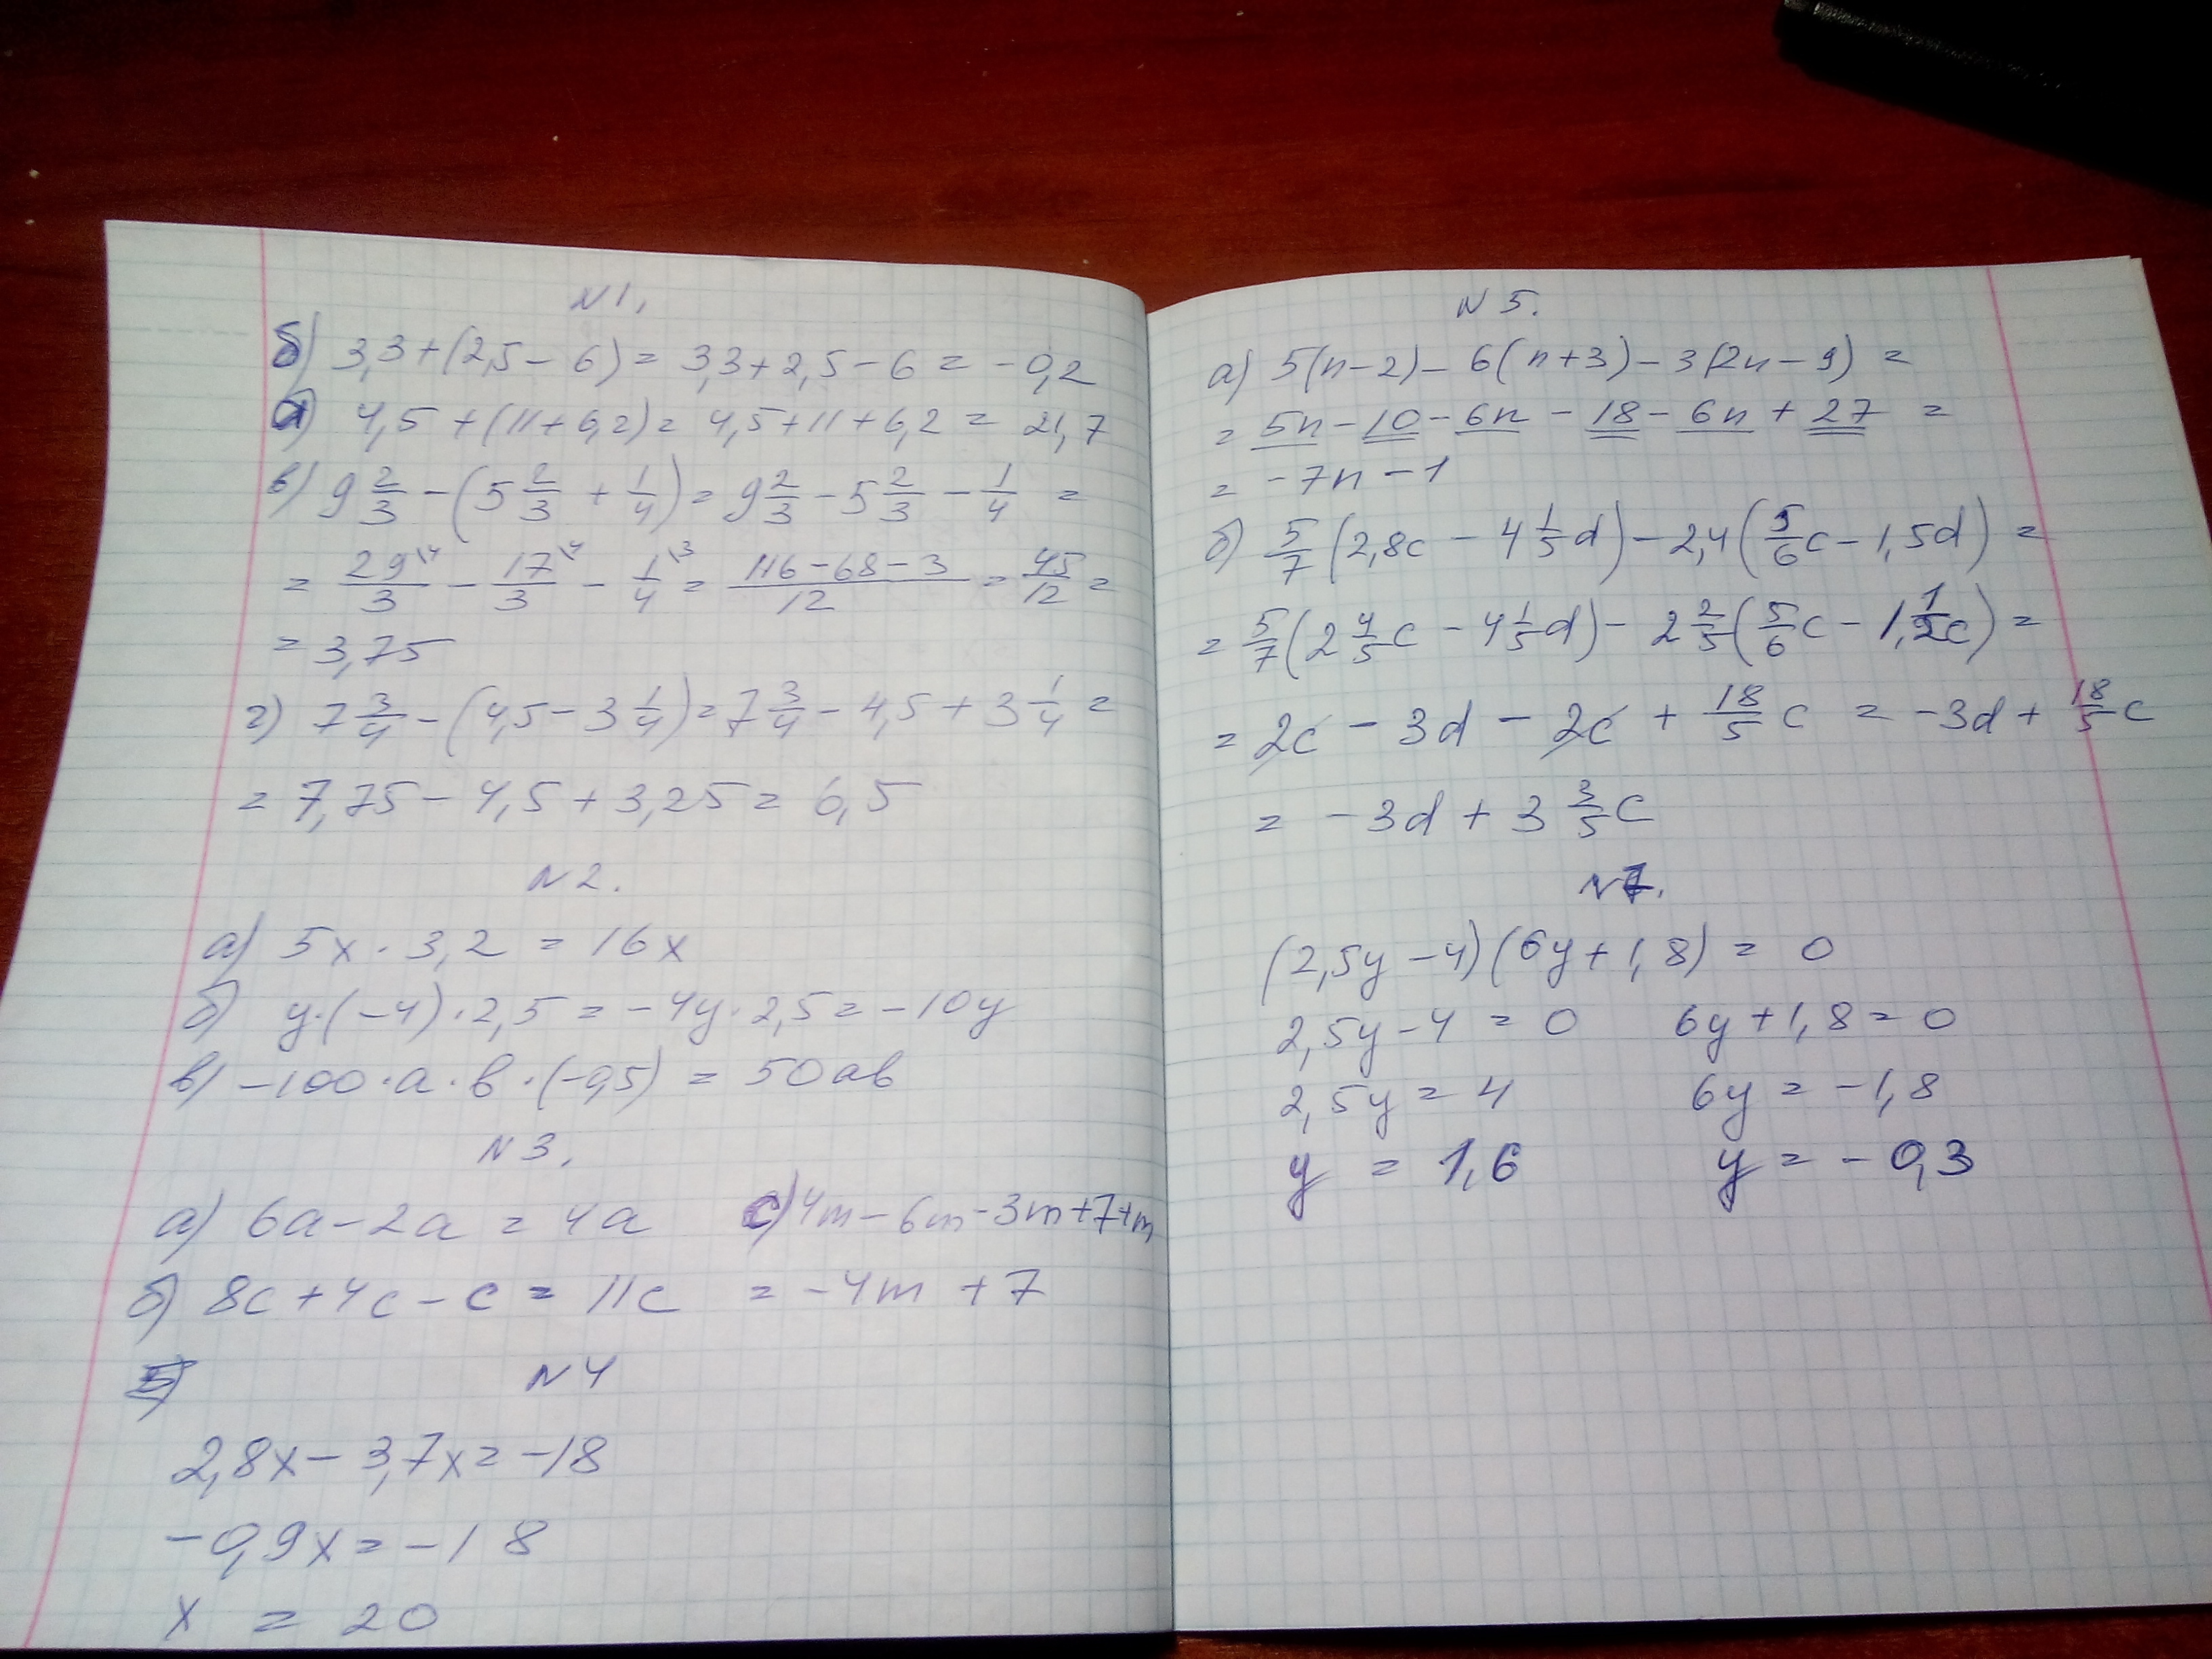 N 1.
б) 3,3+(2,5-6)= 3,3+2,5-6 = -0,2
а) 4,5+(11+6,2)= 4,5+11+6,2 = 21,7
в) 9 2/3 - (5 2/3 + 1/4) = 9 2/3 - 5 2/3 - 1/4 =
= 29/3 \4 - 17/3 \4 - 1/4 \3 = (116-68-3)/12 = 45/12 =
= 3,75
г) 7 3/4 - (4,5 - 3 1/4) = 7 3/4 - 4,5 + 3 1/4 =
= 7,75 - 4,5 + 3,25 = 6,5
N 2.
а) 5x · 3,2 = 16x
б) y·(-4)·2,5 = -4y·2,5 = -10y
в) -100·a·b·(-0,5) = 50ab
N 3.
а) 6a - 2a = 4a
б) 8c + 4c - c = 11c
c) 4m - 6m - 3m + 7 + m
= -4m + 7
N 4
2,8x - 3,7x = -18
-0,9x = -18
x = 20
N 5.
а) 5(n-2) - 6(n+3) - 3(2n-9) =
= 5n - 10 - 6n - 18 - 6n + 27 =
= -7n - 1
б) 5/7 (2,8c - 4 1/5 d) - 2,4 (5/6 c - 1,5d) =
= 5/7 (2 4/5 c - 4 1/5 d) - 2 2/5 (5/6 c - 1, 1/2 c) =
= 2c - 3d - 2c + 18/5 c = -3d + 18/5 c
= -3d + 3 3/5 c
N 7.
(2,5y - 4)(6y + 1,8) = 0
2,5y - 4 = 0 6y + 1,8 = 0
2,5y = 4 6y = -1,8
y = 1,6 y = -0,3